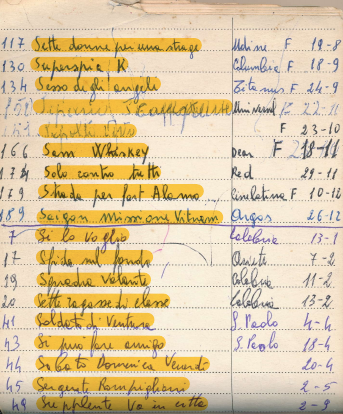 117 Sette donne per una strage Udine F 19-8
130 Superspia K Columbia F 18-9
134 Sesso degli angeli F 24-9
Universal 22-11
F 23-10
166 Sam Whiskey Dear F 18-11
174 Solo contro tutti Red 29-11
179 Strada per fort Alamo Cinelatina F 10-12
189 Saigon missione Vitnam Argos 26-12
7 Si lo voglio Colobria 13-1
17 Sfida sul fondo 7-2
19 Squadra volante Colobria 11-2
20 Sette ragazze di classe Colobria 13-2
41 Soldati di Ventura S. Paolo 4-4
43 Si può fare amigo S. Paolo 18-4
44 Sabato Domenica Venerdì 20-4
45 Sergent Rompiglioni 2-5
49 Supplente va in 2-9